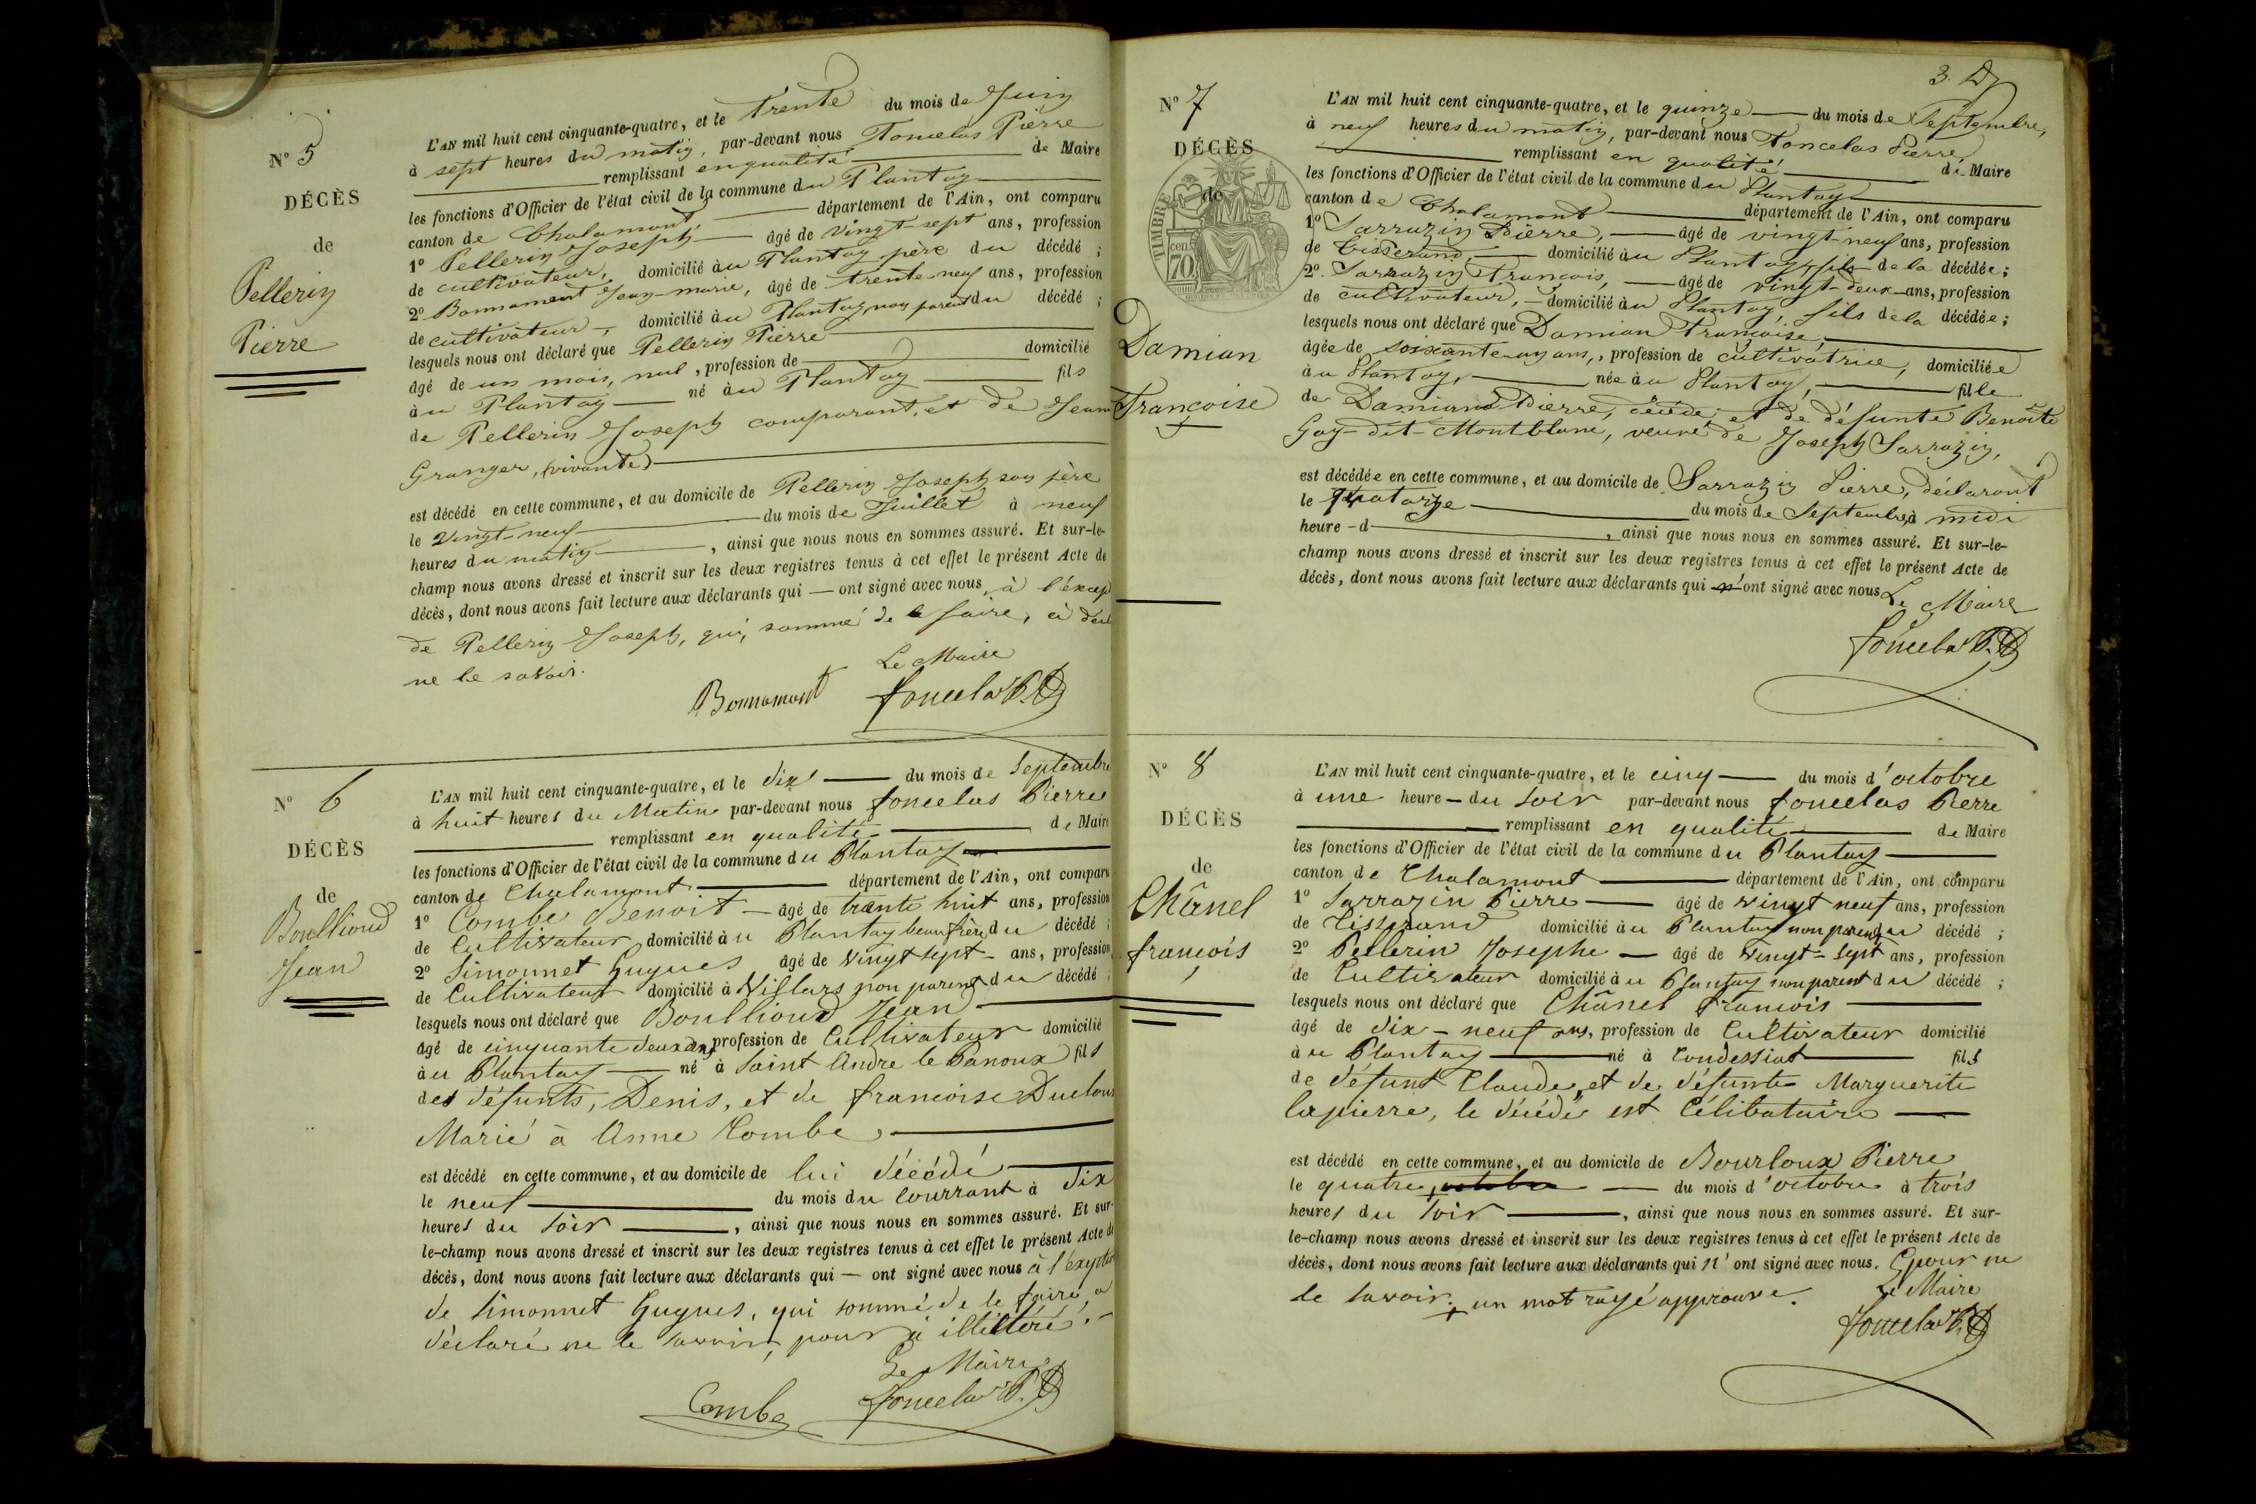 N° 5
DÉCÈS
de
Pellerin
Pierre
L'AN mil huit cent cinquante-quatre, et le trente du mois de Juin
à sept heures du matin, par-devant nous Toncelas Pierre
remplissant en qualité de Maire
les fonctions d'Officier de l'état civil de la commune du Plantay
canton de Chalamont département de l'Ain, ont comparu
1° Pellerin Joseph âgé de vingt-sept ans, profession
de cultivateur, domicilié au Plantay père du décédé ;
2° Bonnamont Jean-marie, âgé de trente-neuf ans, profession
de cultivateur, domicilié au Plantay non parent du décédé ;
lesquels nous ont déclaré que Pellerin Pierre
âgé de un mois, nul, profession de domicilié
au Plantay né au Plantay fils
de Pellerin Joseph comparant, et de Jeanne
Granger, (vivante)
est décédé en cette commune, et au domicile de Pellerin Joseph son père
le vingt-neuf du mois de Juillet à neuf
heures du matin, ainsi que nous nous en sommes assuré. Et sur-le-
champ nous avons dressé et inscrit sur les deux registres tenus à cet effet le présent Acte de
décès, dont nous avons fait lecture aux déclarants qui — ont signé avec nous, à l'excep
de Pellerin Joseph, qui, sommé de le faire, a décl
ne le savoir.
Le Maire
Bonnamont Toncelas P.
N° 6
DÉCÈS
de
Boullioud
Jean
L'AN mil huit cent cinquante-quatre, et le dix du mois de Septembre
à huit heures du Matin par-devant nous foncelas Pierre
remplissant en qualité de Maire
les fonctions d'Officier de l'état civil de la commune du Plantay
canton de Chalamont département de l'Ain, ont comparu
1° Combe Benoit âgé de trente huit ans, profession
de Cultivateur domicilié au Plantay beau frère du décédé ;
2° Simonnet Hugues âgé de vingt sept ans, profession
de Cultivateur domicilié à Villars non parent du décédé ;
lesquels nous ont déclaré que Boullioud Jean
âgé de cinquante deux ans profession de Cultivateur domicilié
au Plantay né à Saint Andre le Panoux fils
des défunts, Denis, et de francoise Ducloux
Marié à Anne Combe
est décédé en cette commune, et au domicile de lui décédé
le neuf du mois du Courrant à dix
heures du soir, ainsi que nous nous en sommes assuré. Et sur-
le-champ nous avons dressé et inscrit sur les deux registres tenus à cet effet le présent Acte de
décès, dont nous avons fait lecture aux déclarants qui — ont signé avec nous à l'exeption
de Simonnet Hugues, qui sommé de le faire a
déclaré ne le savoir, pour illittéré.
Le Maire
Combe foncelas P.
3.
N° 7
DÉCÈS
de
TIMBRE
70 cen
Damian
Françoise
L'AN mil huit cent cinquante-quatre, et le quinze du mois de Septembre,
à neuf heures du matin, par-devant nous Toncelas Pierre,
remplissant en qualité de Maire
les fonctions d'Officier de l'état civil de la commune du Plantay
canton de Chalamont département de l'Ain, ont comparu
1° Sarrazin Pierre, âgé de vingt-neuf ans, profession
de Tisserand, domicilié au Plantay, fils de la décédée ;
2° Sarrazin François, âgé de vingt-deux ans, profession
de cultivateur, domicilié au Plantay, fils de la décédée ;
lesquels nous ont déclaré que Damian Françoise,
âgée de soixante-un ans, profession de cultivatrice, domiciliée
au Plantay, née au Plantay, fille
de Damiand Pierre, décédé, et de défunte Benoîte
Gay-dit-Montblanc, veuve de Joseph Sarrazin,
est décédée en cette commune, et au domicile de Sarrazin Pierre, déclarant
le quatorze du mois de Septembre, à midi
heure d, ainsi que nous nous en sommes assuré. Et sur-le-
champ nous avons dressé et inscrit sur les deux registres tenus à cet effet le présent Acte de
décès, dont nous avons fait lecture aux déclarants qui n'ont signé avec nous
Le Maire
foncelas P.
N° 8
DÉCÈS
de
Chânel
françois
L'AN mil huit cent cinquante-quatre, et le cinq du mois d'octobre
à une heure du soir par-devant nous foncelas Pierre
remplissant en qualité de Maire
les fonctions d'Officier de l'état civil de la commune du Plantay
canton de Chalamont département de l'Ain, ont comparu
1° Sarrazin Pierre âgé de vingt neuf ans, profession
de Tisserand domicilié au Plantay non parent du décédé ;
2° Pellerin Josephe âgé de vingt-sept ans, profession
de Cultivateur domicilié au Plantay non parent du décédé ;
lesquels nous ont déclaré que Chânel francois
âgé de dix-neuf ans, profession de Cultivateur domicilié
au Plantay né à Condessiat fils
de défunt Claude, et de défunte Marguerite
lapierre, le décédé est Célibataire
est décédé en cette commune, et au domicile de Bourloux Pierre
le quatre, + octobre du mois d'octobre à trois
heures du soir, ainsi que nous nous en sommes assuré. Et sur-
le-champ nous avons dressé et inscrit sur les deux registres tenus à cet effet le présent Acte de
décès, dont nous avons fait lecture aux déclarants qui n'ont signé avec nous, pour ne
le savoir. + un mot rayé approuvé.
Le Maire
foncelas P.